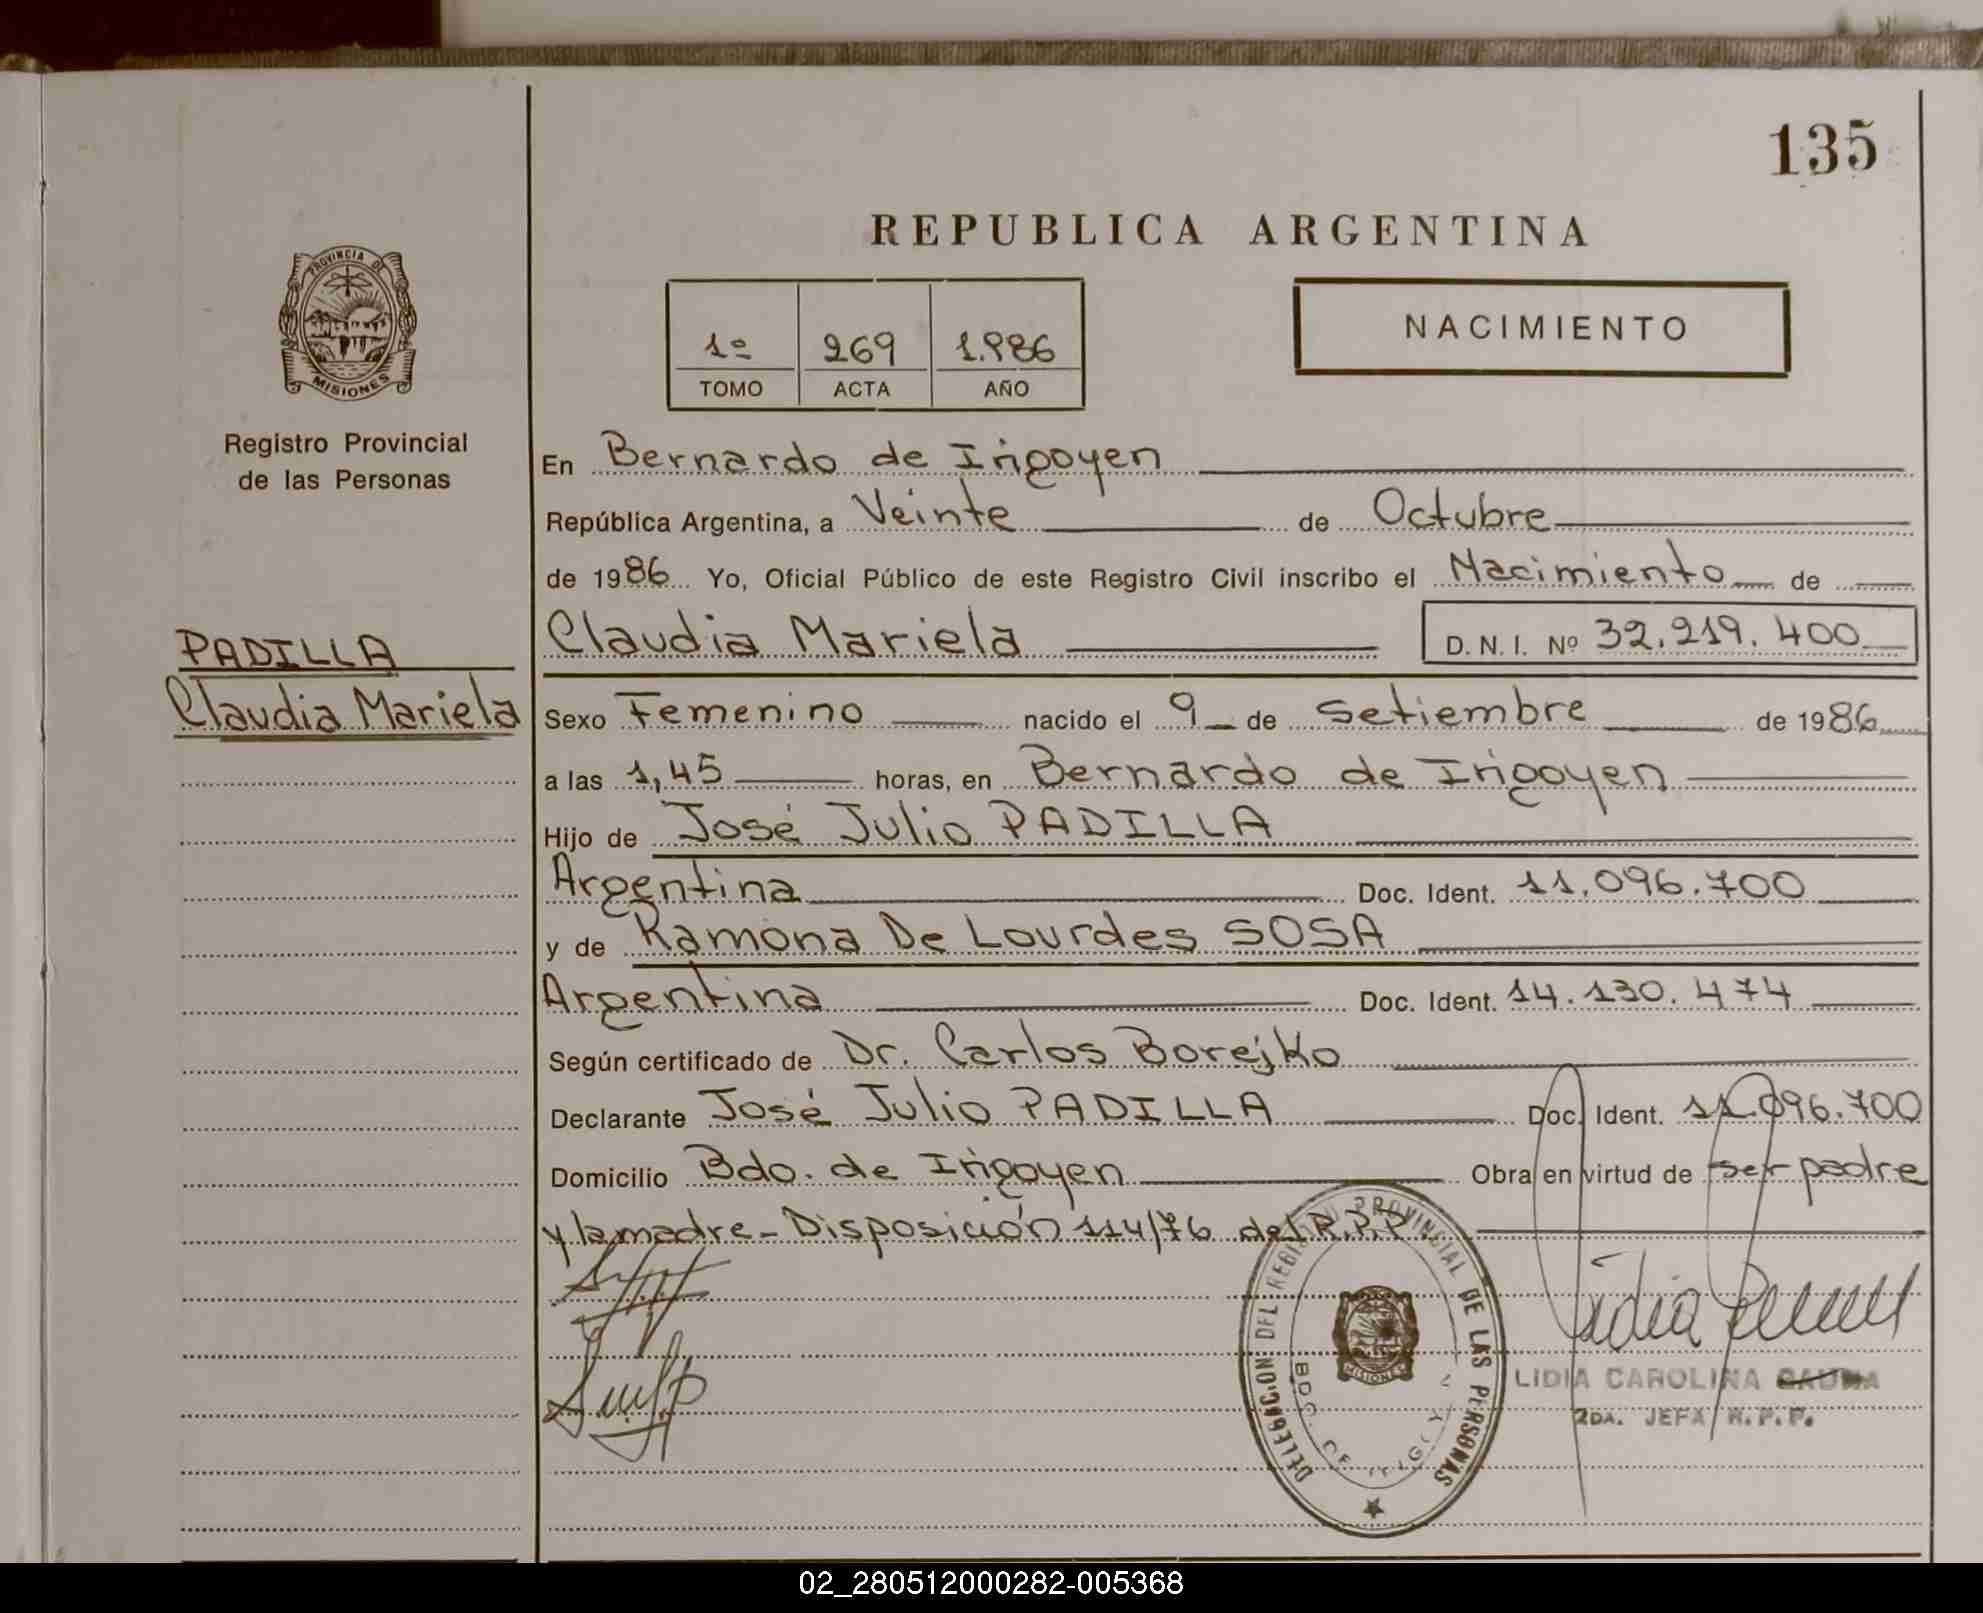 135
REPUBLICA ARGENTINA
PROVINCIA DE
MISIONES
Registro Provincial
de las Personas
1º 269 1.986
TOMO ACTA AÑO
NACIMIENTO
En Bernardo de Irigoyen
República Argentina, a Veinte de Octubre
de 1986 Yo, Oficial Público de este Registro Civil inscribo el Nacimiento de
PADILLA
Claudia Mariela
Claudia Mariela D. N. I. Nº 32.219.400
Sexo Femenino nacido el 9 de Setiembre de 1986
a las 1,45 horas, en Bernardo de Irigoyen
Hijo de José Julio PADILLA
Argentina Doc. Ident. 11.096.700
y de Ramona De Lourdes SOSA
Argentina Doc. Ident. 14.130.474
Según certificado de Dr. Carlos Borejko
Declarante José Julio PADILLA Doc. Ident. 11.096.700
Domicilio Bdo. de Irigoyen Obra en virtud de ser padre
y la madre - Disposición 114/76 del R.P.P.
DELEGACION DEL REGISTRO PROVINCIAL DE LAS PERSONAS
BDO. DE IRIGOYEN
MISIONES
LIDIA CAROLINA
2DA. JEFA R.P.P.
02_280512000282-005368